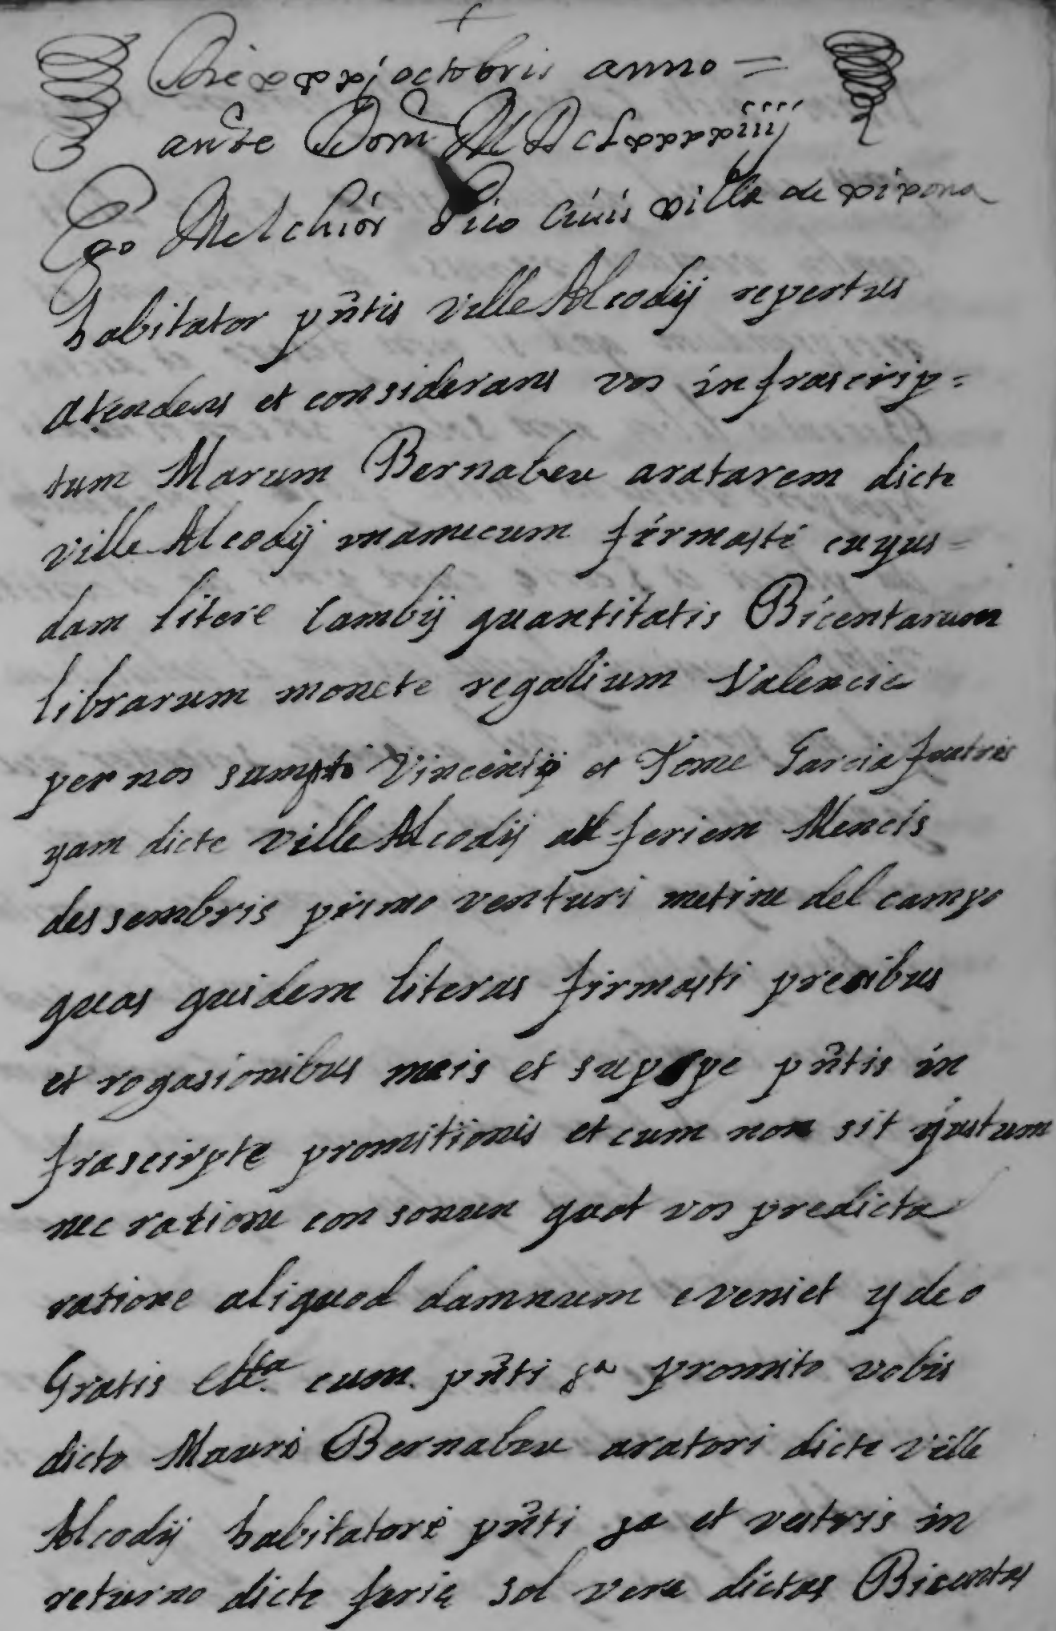 Die xxxj octobris anno =
ante Dom MDCLxxxxiiij
Ego Melchior Pico civis villa de xixona
habitator pñtis ville Alcodij repertus
atendens et considerans vos infrascrip=
tum Marum Bernabeu aratarem dicte
ville Alcodij unamecum firmasti cuyus=
dam litere Cambij quantitatis Bicentarum
librarum monete regallium Valencie
per nos sumpti Vincentij et Tome Garcia fratris
yam dicte ville Alcodij ad feriem Mencis
dessembris primo venturi metine del campo
quas quidem literas firmasti presibus
et rogasionibus meis et pñtis in
frascirpte promitionis et cum non sit yustum
nec ratione consonun quot vos predicta
ratione aliquod damnum eveniet ydeo
Gratis ettª cum pñti gª promito vobis
dicto Mauro Bernabeu aratori dicte ville
Alcodij habitatore pñti ga et vestris in
returno dicte ferie sol vere dictas Bicentas